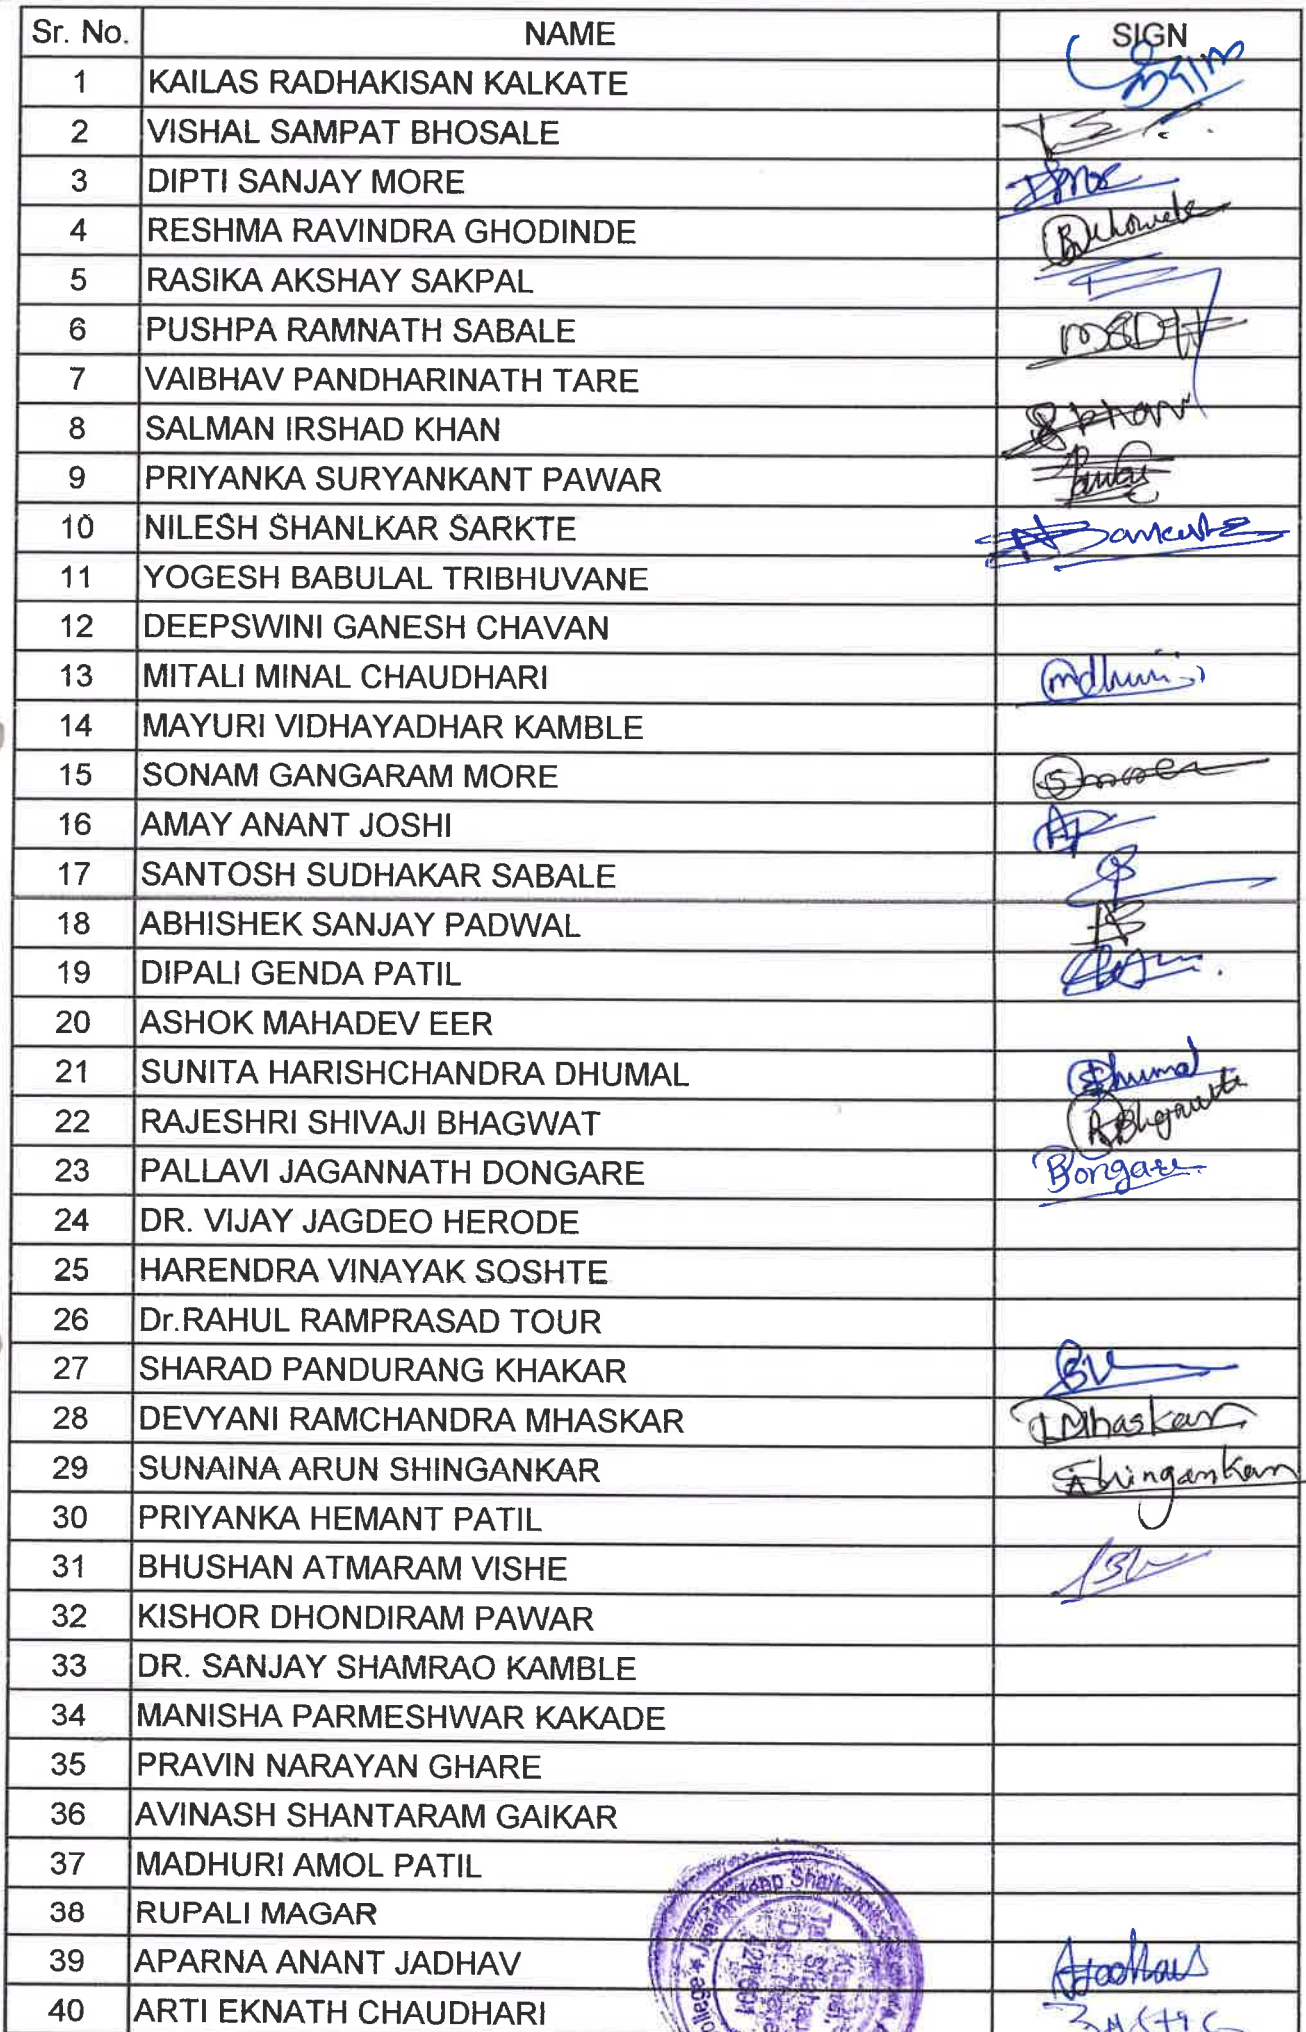 Sr. No. NAME SIGN
1 KAILAS RADHAKISAN KALKATE
2 VISHAL SAMPAT BHOSALE
3 DIPTI SANJAY MORE
4 RESHMA RAVINDRA GHODINDE
5 RASIKA AKSHAY SAKPAL
6 PUSHPA RAMNATH SABALE
7 VAIBHAV PANDHARINATH TARE
8 SALMAN IRSHAD KHAN
9 PRIYANKA SURYANKANT PAWAR
10 NILESH SHANLKAR SARKTE
11 YOGESH BABULAL TRIBHUVANE
12 DEEPSWINI GANESH CHAVAN
13 MITALI MINAL CHAUDHARI
14 MAYURI VIDHAYADHAR KAMBLE
15 SONAM GANGARAM MORE
16 AMAY ANANT JOSHI
17 SANTOSH SUDHAKAR SABALE
18 ABHISHEK SANJAY PADWAL
19 DIPALI GENDA PATIL
20 ASHOK MAHADEV EER
21 SUNITA HARISHCHANDRA DHUMAL
22 RAJESHRI SHIVAJI BHAGWAT
23 PALLAVI JAGANNATH DONGARE
24 DR. VIJAY JAGDEO HERODE
25 HARENDRA VINAYAK SOSHTE
26 Dr.RAHUL RAMPRASAD TOUR
27 SHARAD PANDURANG KHAKAR
28 DEVYANI RAMCHANDRA MHASKAR
29 SUNAINA ARUN SHINGANKAR Shingankar
30 PRIYANKA HEMANT PATIL
31 BHUSHAN ATMARAM VISHE
32 KISHOR DHONDIRAM PAWAR
33 DR. SANJAY SHAMRAO KAMBLE
34 MANISHA PARMESHWAR KAKADE
35 PRAVIN NARAYAN GHARE
36 AVINASH SHANTARAM GAIKAR
37 MADHURI AMOL PATIL
38 RUPALI MAGAR
39 APARNA ANANT JADHAV
40 ARTI EKNATH CHAUDHARI